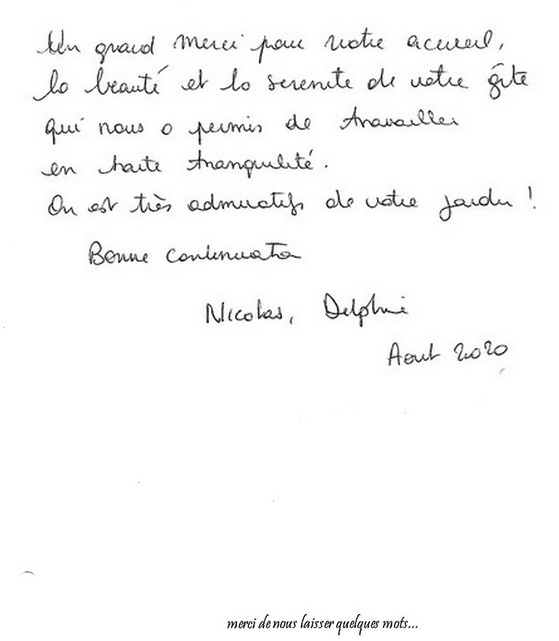 Un grand merci pour votre accueil,
la beauté et la serenite de votre gîte
qui nous a permis de travailler
en toute tranquilité.
On est très admiratifs de votre jardin !
Bonne continuation
Nicolas, Delphine
Aout 2020
merci de nous laisser quelques mots...